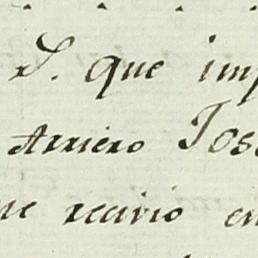 S. que imp
Arriero Jos
ne recivio en